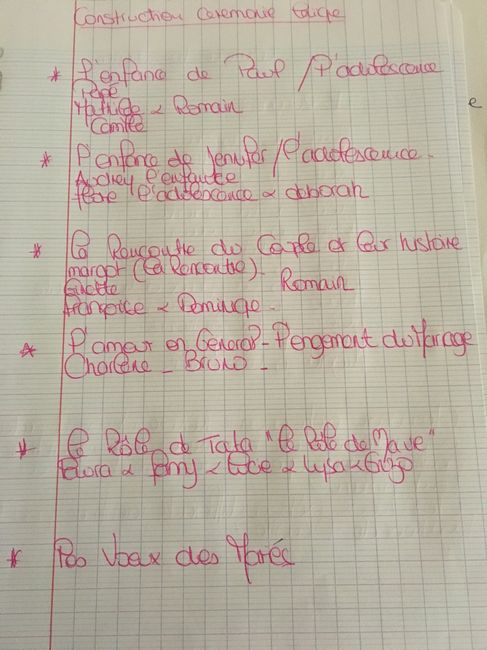 Construction Ceremonie Laïque
* L'enfance de Paul / l'adolescence
Papé
Mathilde & Romain
Camille
* L'enfance de Jennifer / l'adolescence.
Audrey l'enfance
l'adolescence & deborah
* La Rencontre du Couple et leur histoire
margot (la Rencontre).
Ginette Romain
Françoise & Dominique.
* L'amour en General - l'engement du Mariage
Charlène - Bruno -
* Le Rôle de Tata "le Rôle de
& & & &
* Les Vœux des Mariés
e